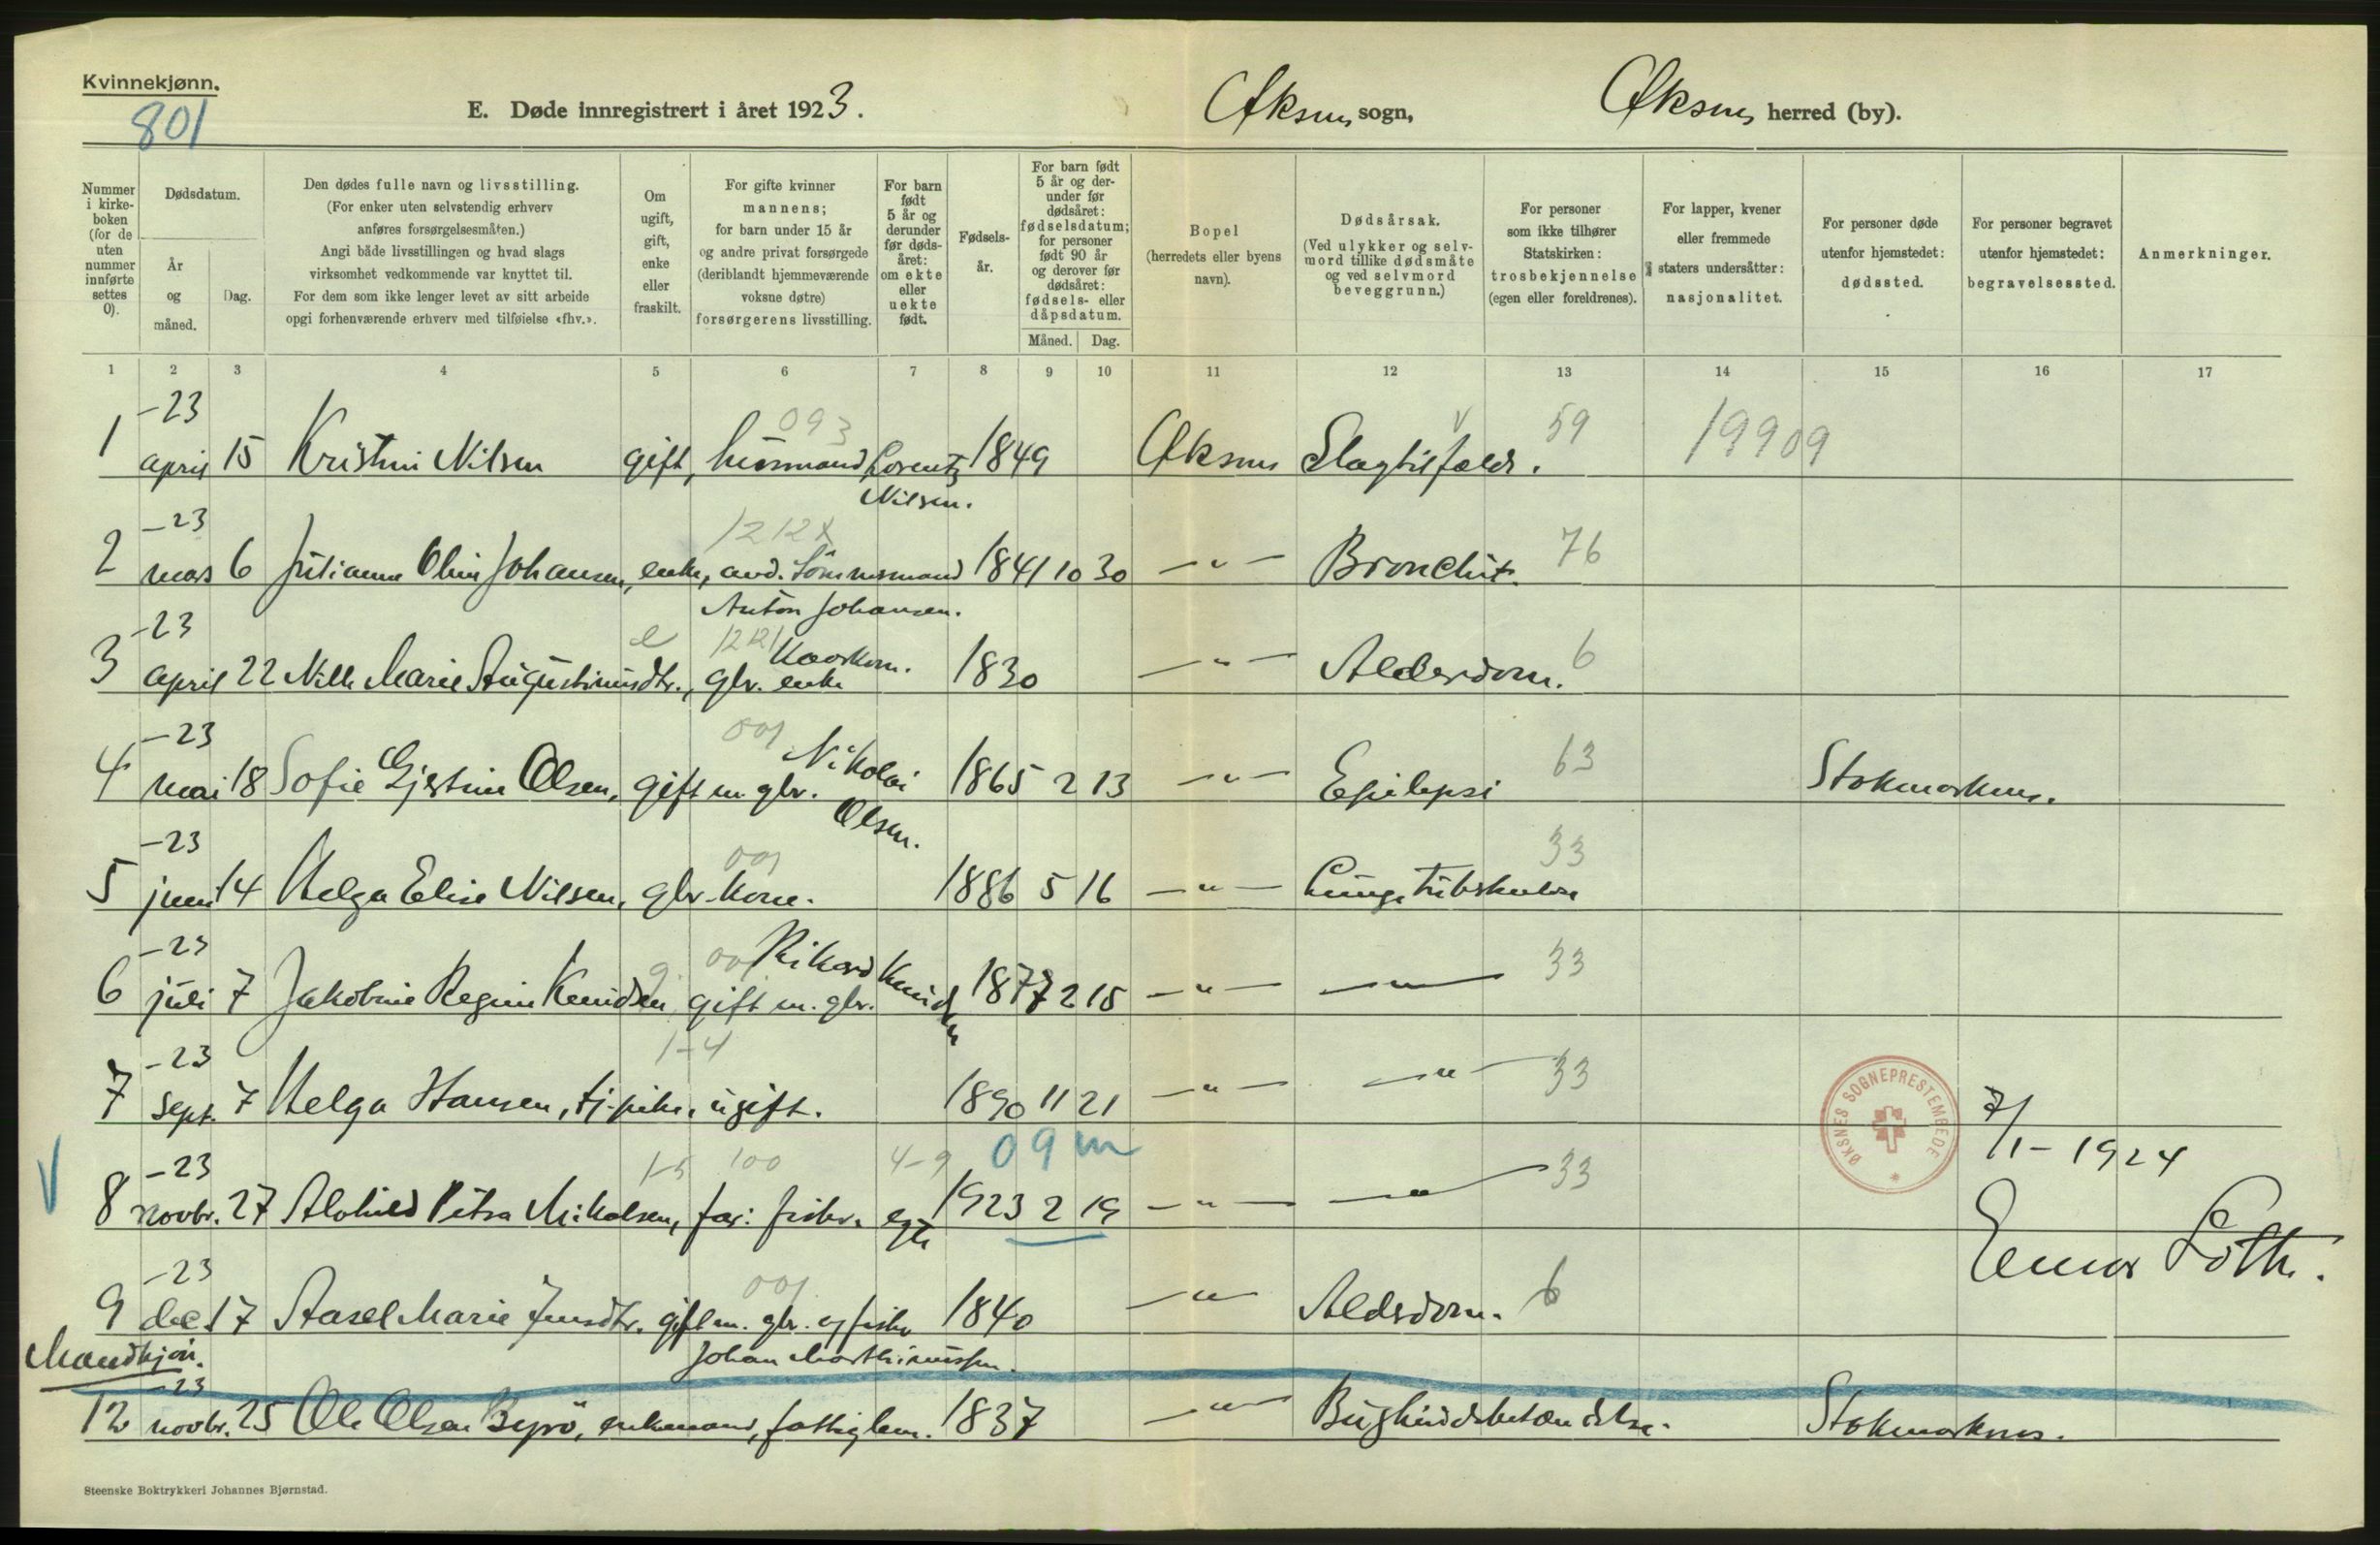 Kvinnekjønn.
801
E. Døde innregistrert i året 1923.
Øksnes sogn,
Øksnes herred (by).
Nummer i kirke-boken (for de uten nummer innførte settes 0).
Dødsdatum.
År og måned.
Dag.
Den dødes fulle navn og livsstilling.
(For enker uten selvstendig erhverv
anføres forsørgelsesmåten.)
Angi både livsstillingen og hvad slags
virksomhet vedkommende var knyttet til.
For dem som ikke lenger levet av sitt arbeide
opgi forhenværende erhverv med tilføielse «fhv.».
Om ugift, gift, enke eller fraskilt.
For gifte kvinner
mannens;
for barn under 15 år
og andre privat forsørgede
(deriblandt hjemmeværende
voksne døtre)
forsørgerens livsstilling.
For barn født 5 år og derunder før døds-året: om ekte eller uekte født.
Fødsels-år.
For barn født 5 år og der-under før dødsåret: fødselsdatum; for personer født 90 år og derover før dødsåret: fødsels- eller dåpsdatum.
Måned. Dag.
Bopel
(herredets eller byens
navn).
Dødsårsak.
(Ved ulykker og selv-
mord tillike dødsmåte
og ved selvmord
beveggrunn.)
For personer
som ikke tilhører
Statskirken:
trosbekjennelse
(egen eller foreldrenes).
For lapper, kvener
eller fremmede
staters undersåtter:
nasjonalitet.
For personer døde
utenfor hjemstedet:
dødssted.
For personer begravet
utenfor hjemstedet:
begravelsessted.
Anmerkninger.
1 2 3 4 5 6 7 8 9 10 11 12 13 14 15 16 17
-23 093 59 19909
1 april 15 Kristine Nilsen gift, husmand Lorentz 1849 Øksnes Slagtilfælde.
Nilsen.
-23 1212X 76
2 mars 6 Julianna Oline Johansen, enke, avd. tømmermand 1841 10 30 -"- Bronchit.
Anton Johansen.
-23 e 1221 Kaarkone. 6
3 april 22 Nille Marie Augustinusdtr., gbr. enke 1830 -"- Alderdom.
-23 001 Nikolai 63
4 mai 18 Sofie Gjertine Olsen, gift m. gbr. 1865 2 13 -"- Epilepsi Stokmarknes.
Olsen.
-23 001 33
5 juni 14 Helga Elise Nilsen, gbr. kone. 1886 5 16 -"- Lungetuberkulose
-23 g. 001 Rikard Knudsen 33
6 juli 7 Jakobine Regine Knudsen gift m. gbr. 1877 2 15 -"- -"-
-23 1-4 33
7 sept. 7 Helga Hansen, tj.pike, ugift. 1890 11 21 -"- -"-
ØKSNES SOGNEPRESTEMBEDE
7/1-1924
-23 1-5 100 4-9 09 m 33
V 8 novbr. 27 Alvhild Petra Mikalsen, far: fisker egte 1923 2 19 -"- -"-
Einar Loth.
-23 001 6
9 dec 17 Aasel Marie Jensdtr. gift m. gbr. og fisker 1840 -"- Alderdom.
Johan Marthinussen.
Mandkjøn.
-23
12 novbr. 25 Ole Olsen Byrø, enkemand, fattiglem. 1837 -"- Bughindebetændelse. Stokmarknes.
Steenske Boktrykkeri Johannes Bjørnstad.